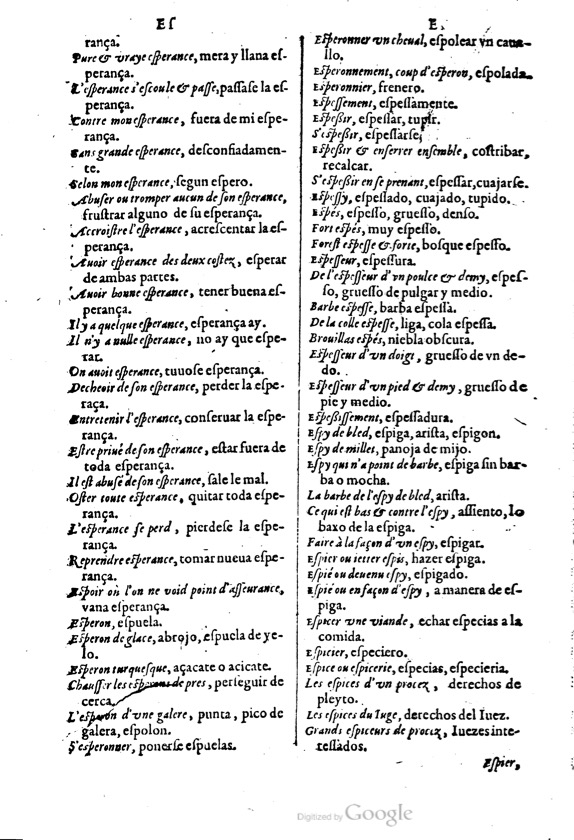 ES
rança.
Pure & vraye esperance, mera y llana es-
perança.
L'esperance s'escoule & passe, passase la es-
perança.
Contre mon esperance, fuera de mi espe-
rança.
Sans grande esperance, desconfiadamen-
te.
Selon mon esperance, segun espero.
Abuser ou tromper aucun de son esperance,
frustrar alguno de su esperança.
Accroistre l'esperance, acrescentar la es-
perança.
Auoir esperance des deux costez, esperar
de ambas partes.
Auoir bonne esperance, tener buena es-
perança.
Il y a quelque esperance, esperança ay.
Il n'y a nulle esperance, no ay que espe-
rar.
On auoit esperance, tuuose esperança.
Decheoir de son esperance, perder la espe-
raça.
Entretenir l'esperance, conseruar la espe-
rança.
Estre priué de son esperance, estar fuera de
toda esperança.
Il est abusé de son esperance, sale le mal.
Oster toute esperance, quitar toda espe-
rança.
L'esperance se perd, pierdese la espe-
rança.
Reprendre esperance, tomar nueua espe-
rança.
Espoir où l'on ne void point d'asseurance,
vana esperança.
Esperon, espuela.
Esperon de glace, abrojo, espuela de ye-
lo.
Esperon turquesque, açacate o acicate.
Chausser les esperons de pres, perseguir de
cerca.
L'esperon d'vne galere, punta, pico de
galera, espolon.
S'esperonner, ponerse espuelas.
E.
Esperonner vn cheual, espolear vn caua-
llo.
Esperonnement, coup d'esperon, espolada.
Esperonnier, frenero.
Espessement, espessamente.
Espessir, espessar, tupir.
S'espessir, espessarse,
Espessir & enserrer ensemble, costribar,
recalcar.
S'espessir en se prenant, espessar, cuajarse.
Espessy, espessado, cuajado, tupido.
Espés, espesso, gruesso, denso.
Fort espés, muy espesso.
Forest espesse & forte, bosque espesso.
Espesseur, espessura.
De l'espesseur d'vn poulce & demy, espes-
so, gruesso de pulgar y medio.
Barbe espesse, barba espessa.
De la colle espesse, liga, cola espessa.
Brouillas espés, niebla obscura.
Espesseur d'vn doigt, gruesso de vn de-
do.
Espesseur d'vn pied & demy, gruesso de
pie y medio.
Espessissement, espessadura.
Espy de bled, espiga, arista, espigon.
Espy de millet, panoja de mijo.
Espy qui n'a point de barbe, espiga sin bar-
ba o mocha.
La barbe de l'espy de bled, arista.
Ce qui est bas & contre l'espy, assiento, lo
baxo de la espiga.
Faire à la façon d'vn espy, espigar.
Espier ou ietter espis, hazer espiga.
Espié ou deuenu espy, espigado.
Espié ou en façon d'espy, a manera de es-
piga.
Espicer vne viande, echar especias a la
comida.
Espicier, especiero.
Espice ou espicerie, especias, especieria.
Les espices d'vn procez, derechos de
pleyto.
Les espices du Iuge, derechos del Iuez.
Grands espiceurs de procez, Iuezes inte-
ressados.
Espier,
Digitized by Google